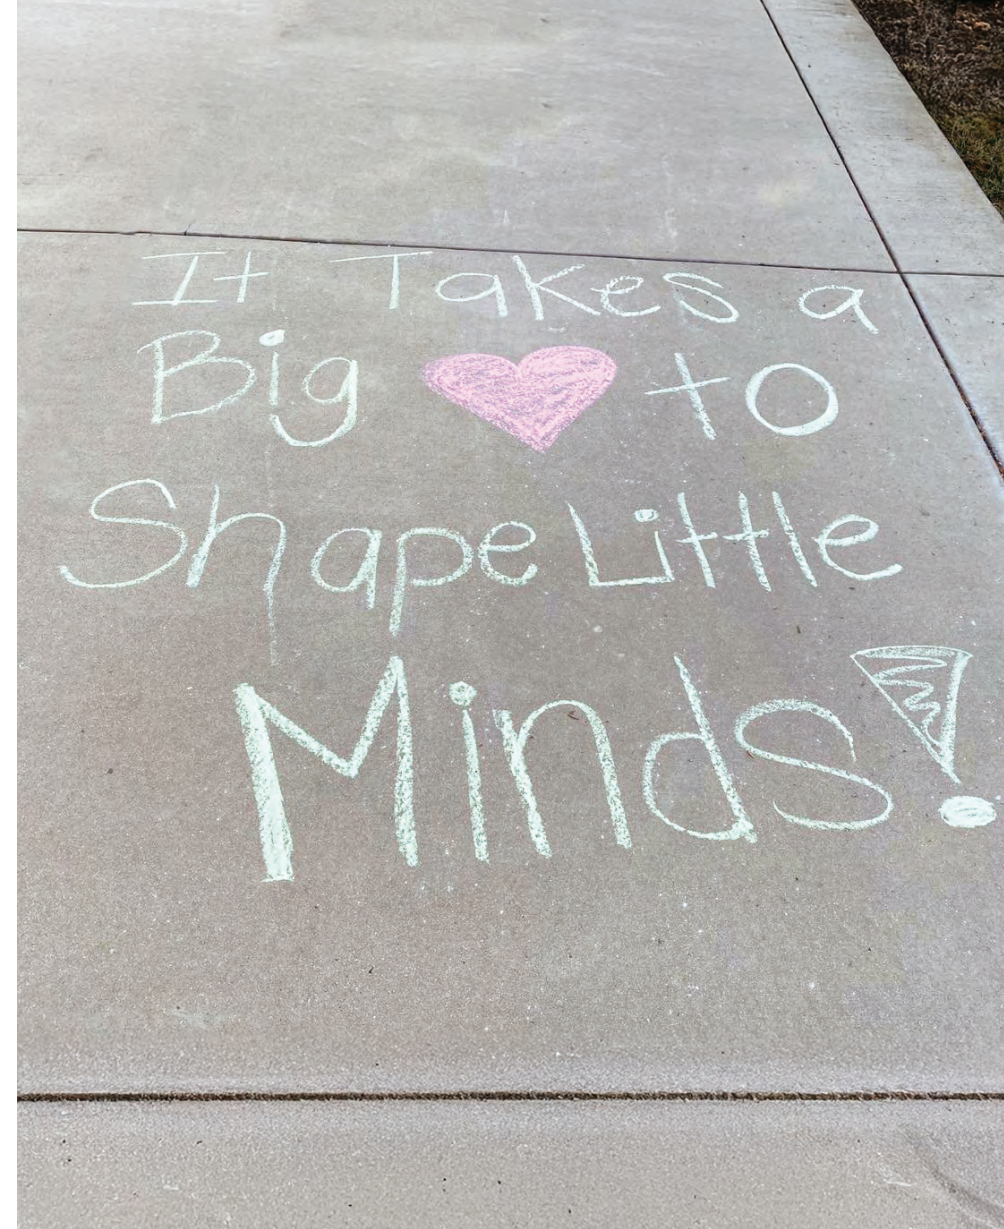 It Takes a
Big to
Shape Little
Minds!